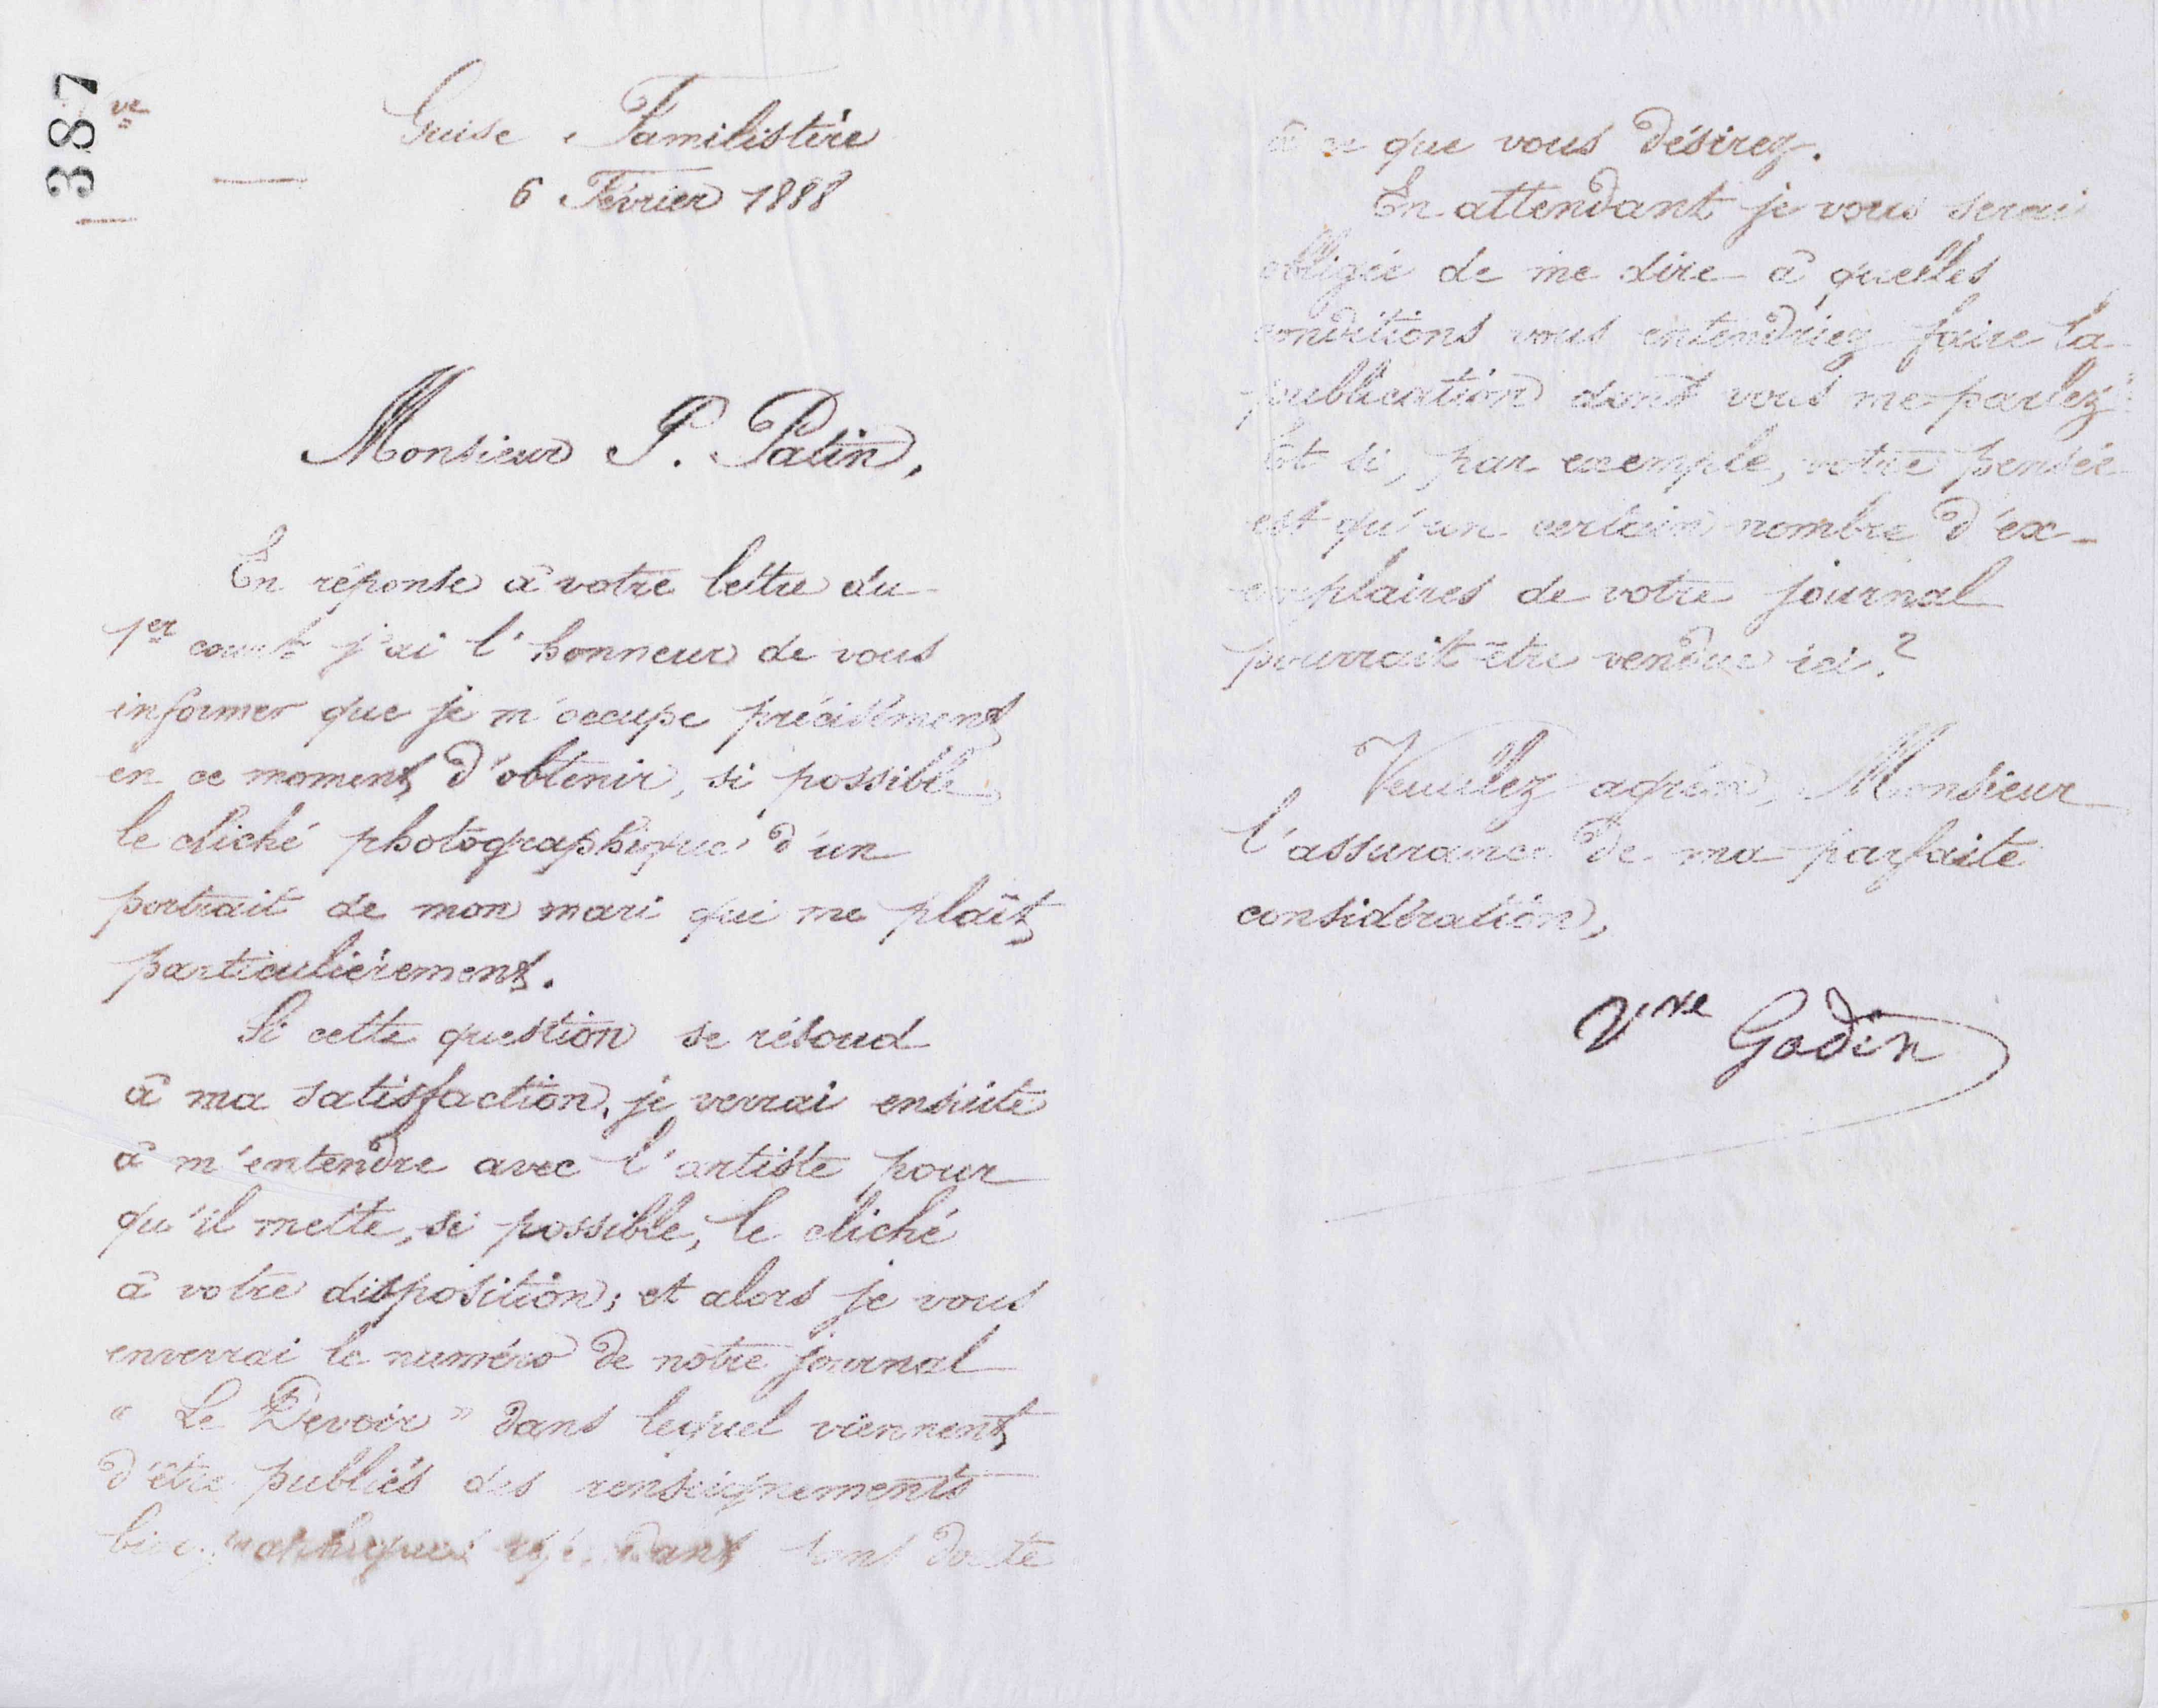 387
ve
Guise, Familistère
6 Février 1888
Monsieur P. Patin,
En réponse à votre lettre du
1er courant j'ai l'honneur de vous
informer que je m'occupe précisément
en ce moment d'obtenir, si possible
le cliché photographique d'un
portrait de mon mari qui me plaît
particulièrement.
Si cette question se résoud
à ma satisfaction, je verrai ensuite
à m'entendre avec l'artiste pour
qu'il mette, si possible, le cliché
à votre disposition; et alors je vous
enverrai le numéro de notre journal
" Le Devoir " dans lequel viennent
d'être publiés des renseignements
biographiques sans doute
à ce que vous désirez.
En attendant je vous serai
obligée de me dire à quelles
conditions vous entendriez faire la
publication dont vous me parlez
Et si, par exemple, votre pensée
est qu'un certain nombre d'ex-
emplaires de votre journal
pourrait être vendue ici?
Veuillez agréer, Monsieur
l'assurance de ma parfaite
considération,
Vve Godin